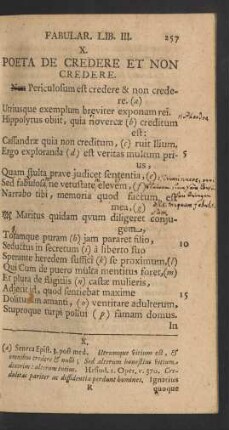 FABULAR. LIB. III. 257
X.
POETA DE CREDERE ET NON
CREDERE.
Periculosum est credere & non crede-
re. (a)
Utriusque exemplum breviter exponam rei.
Hippolytus obiit, quia novercæ (b) creditum
est:
Cassandræ quia non creditum, (c) ruit Ilium.
Ergo exploranda (d) est veritas multum pri-
us, 5
Quam stulta prave judicet sententia, (e)
Sed fabulosa ne vetustate elevem, (f)
Narrabo tibi, memoria quod factum est
mea, (g)
Maritus quidam qvum diligeret conju-
gem,
Togamque puram (h) jam pararet filio, 10
Seductus in secretum (i) a liberto suo
Sperante heredem suffici (k) se proximum, (l)
Qui Cum de puero multa mentitus foret, (m)
Et plura de flagitiis (n) castæ mulieris,
Adjecit id, quod sentiebat maxime 15
Doliturum amanti, (o) ventitare adulterum,
Stuproque turpi pollui (p) famam domus.
In
X.
(a) Seneca Epist. 3. post med. Utrumque vitium est, &
omnibus credere & nulli: Sed alterum honestius vitium
dixerim: alterum tutius. Hesiod. 1. Oper. v. 370. Cre-
dulitas pariter ac diffidentia perdunt homines, Ignatius
R quoque